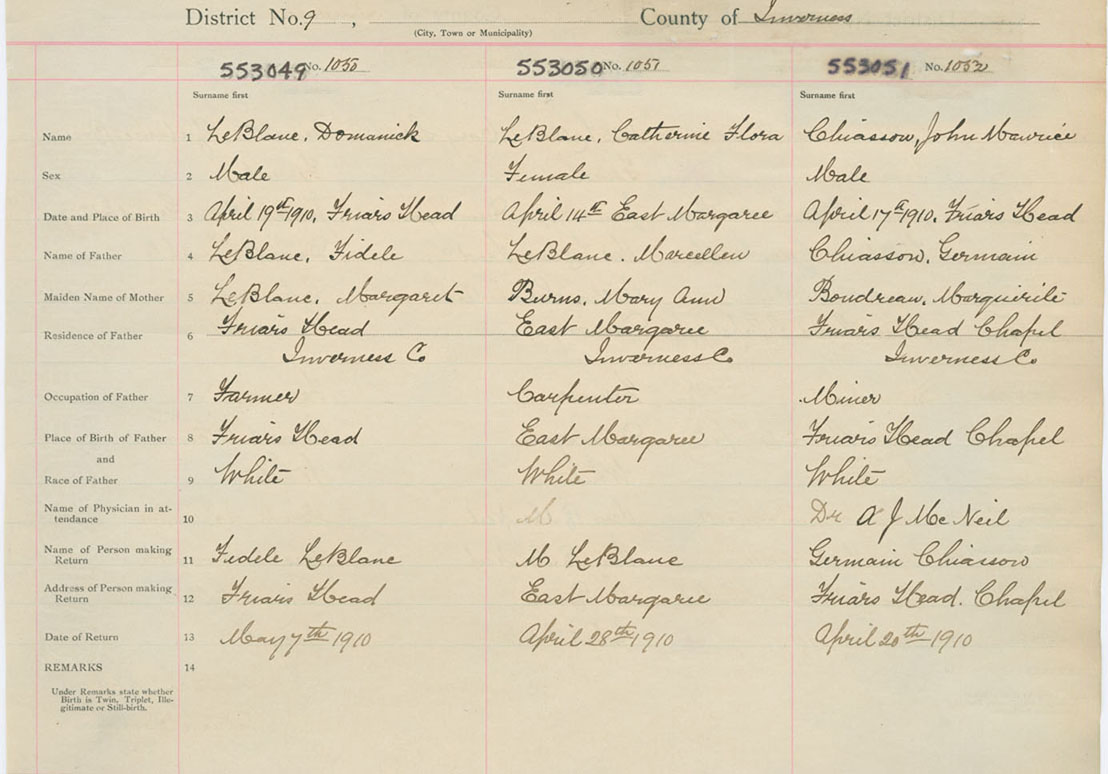 District No. 9 , County of Inverness
(City, Town or Municipality)
553049 No. 1050 553050 No. 1051 553051 No. 1052
Surname first Surname first Surname first
Name 1 LeBlanc, Domanick LeBlanc, Catherine Flora Chiasson, John Maurice
Sex 2 Male Female Male
Date and Place of Birth 3 April 19th 1910, Friars Head April 14th East Margaree April 17th 1910, Friars Head
Name of Father 4 LeBlanc, Fidele LeBlanc. Marcellen Chiasson, Germain
Maiden Name of Mother 5 LeBlanc, Margaret Burns, Mary Ann Boudreau, Marguirite
Residence of Father 6 Friars Head East Margaree Friars Head Chapel
Inverness Co Inverness Co Inverness Co
Occupation of Father 7 Farmer Carpenter Miner
Place of Birth of Father 8 Friars Head East Margaree Friars Head Chapel
and
Race of Father 9 White White White
Name of Physician in at-
tendance 10 M Dr A J McNeil
Name of Person making
Return 11 Fidele LeBlanc M LeBlanc Germain Chiasson
Address of Person making
Return 12 Friars Head East Margaree Friars Head. Chapel
Date of Return 13 May 7th 1910 April 28th 1910 April 20th 1910
REMARKS 14
Under Remarks state whether
Birth is Twin, Triplet, Ille-
gitimate or Still-birth.